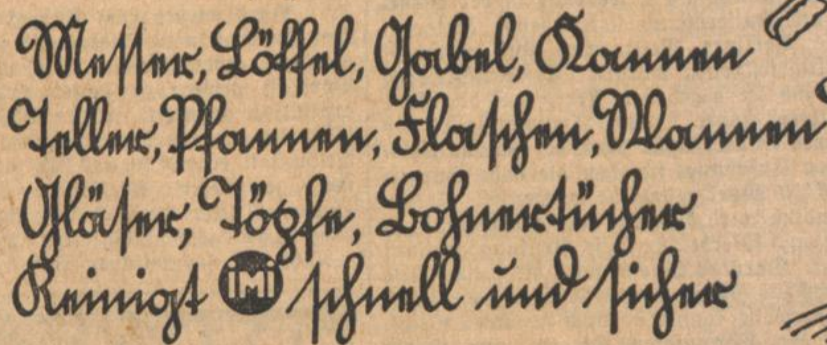 Messer, Löffel, Gabel, Kannen
Teller, Pfannen, Flaschen, Wannen
Gläser, Töpfe, Bohnertücher
Reinigt iMi schnell und sicher